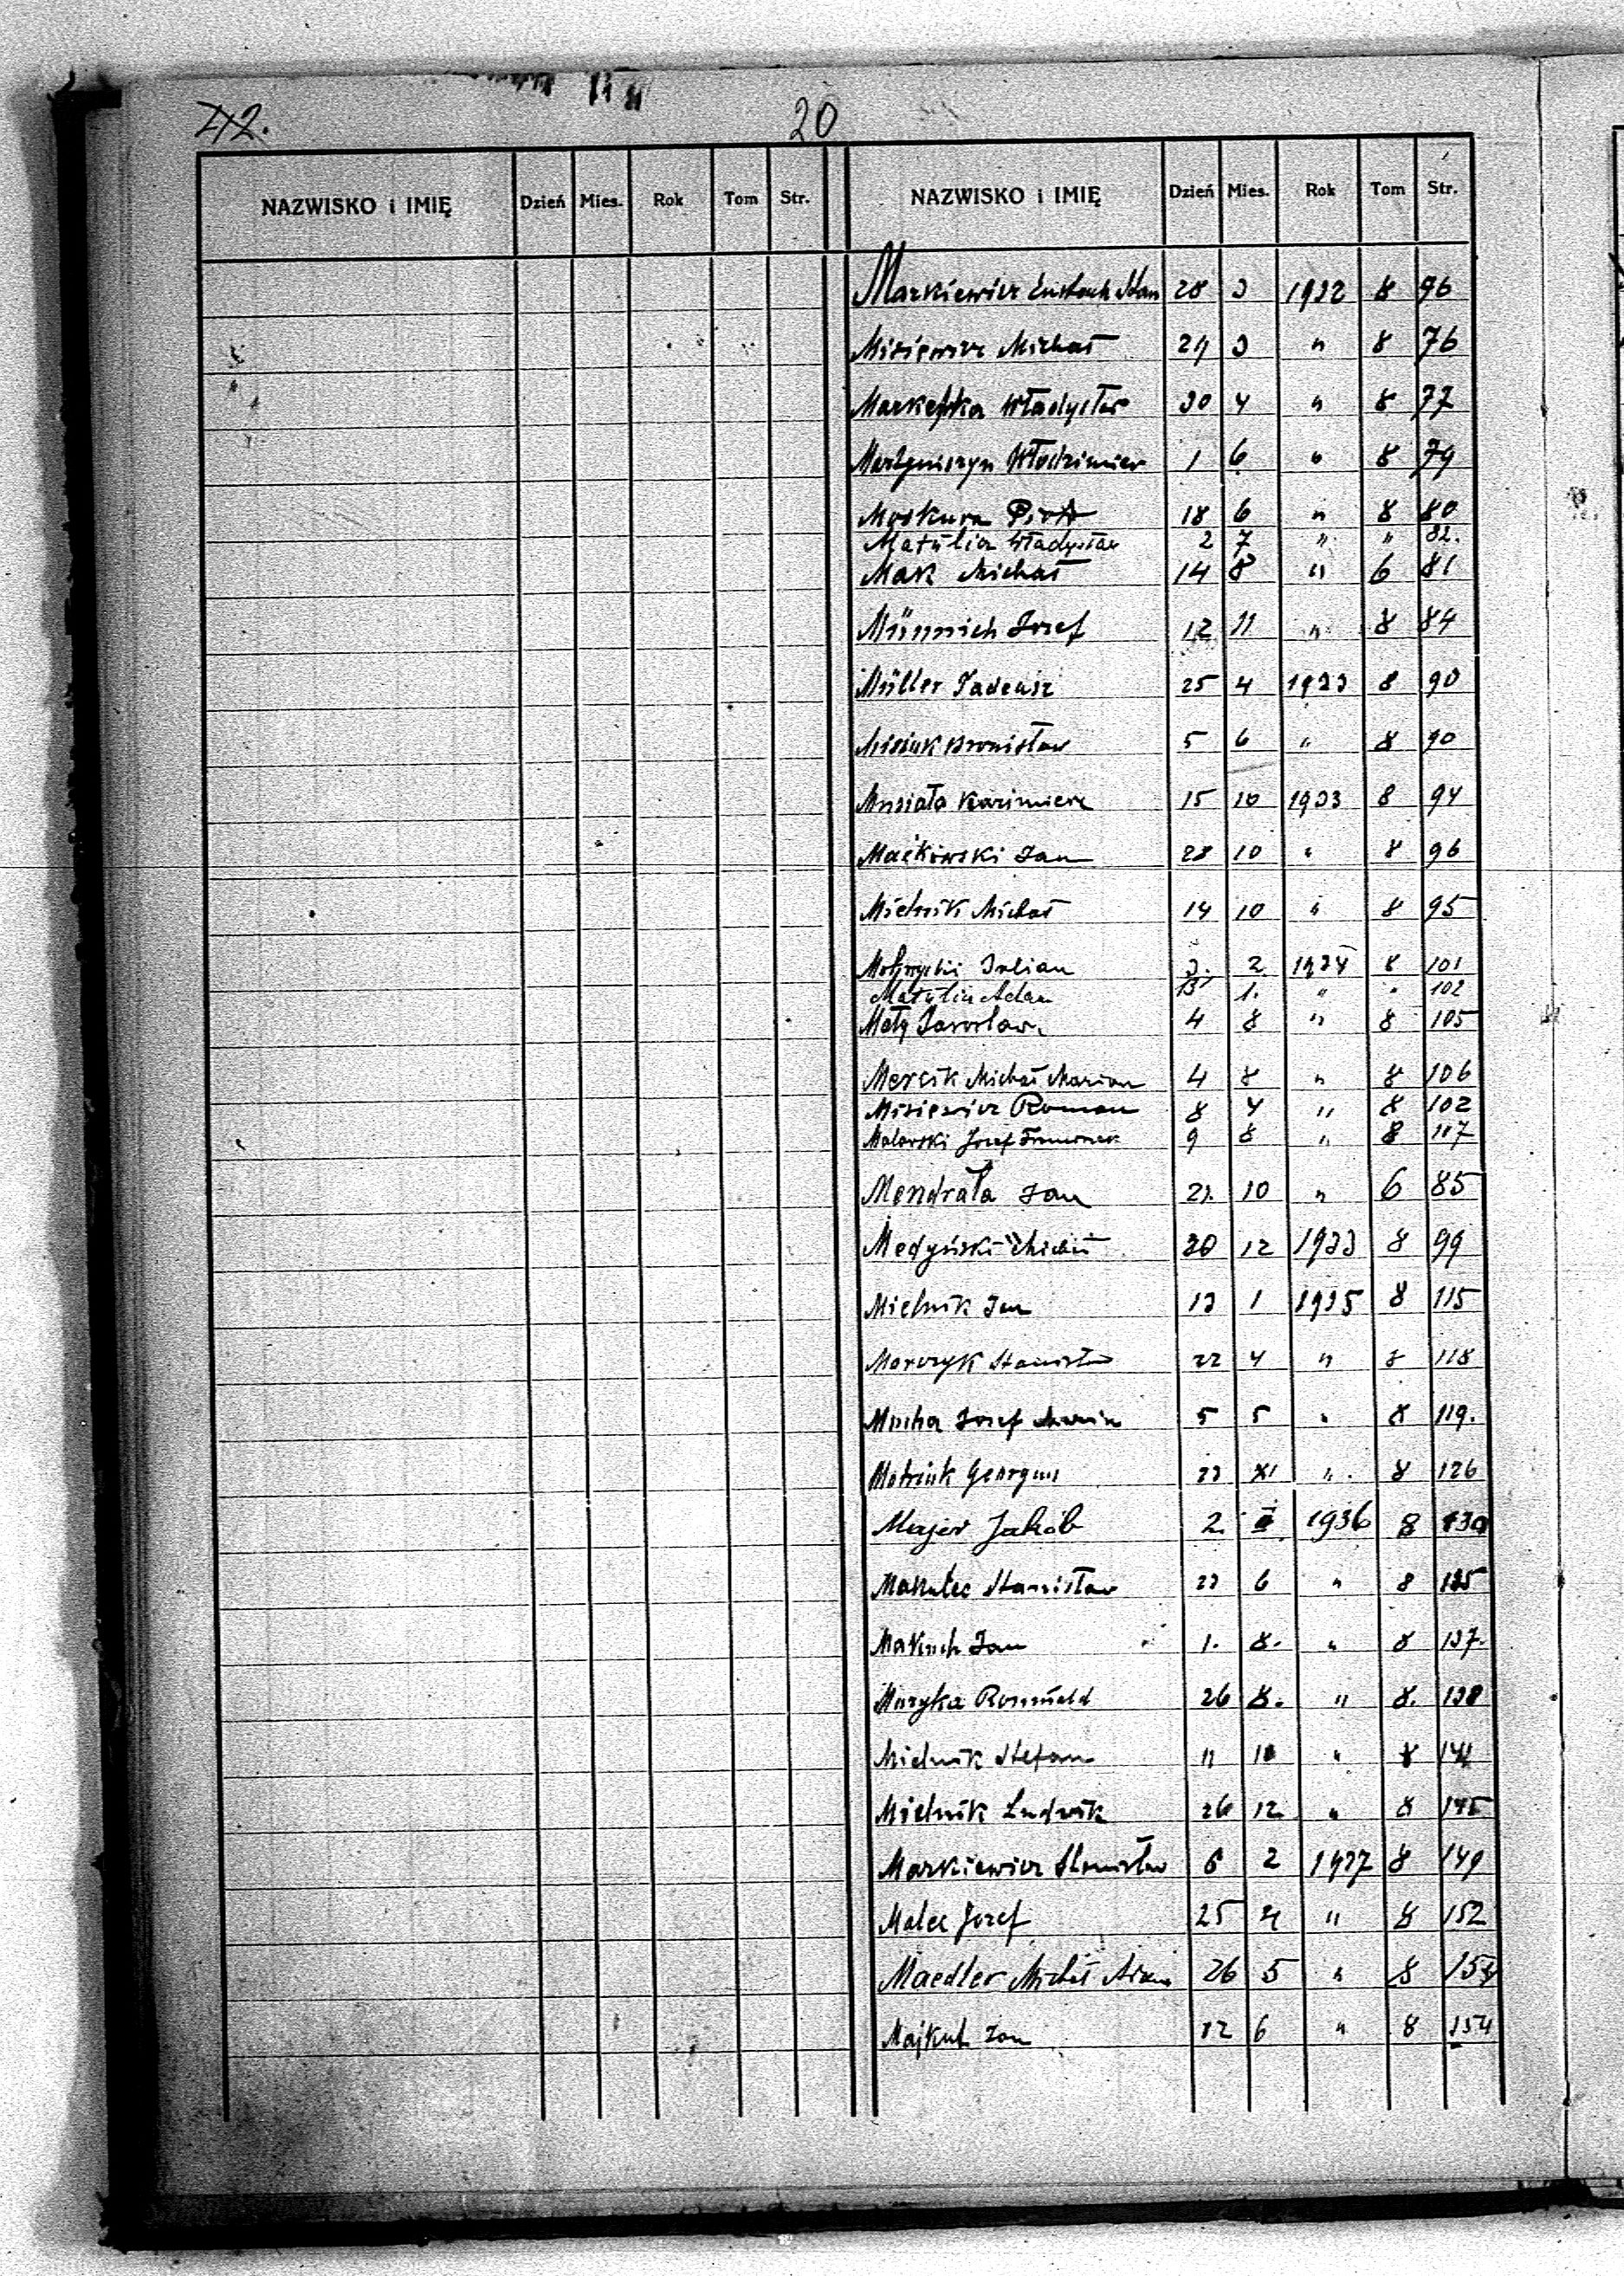 42.
20
NAZWISKO i IMIĘ Dzień Mies. Rok Tom Str. NAZWISKO i IMIĘ Dzień Mies. Rok Tom Str.
Markiewicz Eustach Stan 28 3 1932 8 76
Misiewicz Michał 29 3 " 8 76
Władysław 30 4 " 8 77
Martyniszyn Włodzimierz 1 6 " 8 79
Moskwa Piotr 18 6 " 8 80
Matulia Władysław 2 7 " " 82.
Mak Michał 14 8 " 6 81
Münnich Józef 12 11 " 8 84
Müller Tadeusz 25 4 1933 8 90
Misiuk Bronisław 5 6 " 8 90
Musiało Kazimierz 15 10 1933 8 94
Maćkowski Jan 28 10 " 8 96
Mielnik Michał 14 10 " 8 95
Julian 3. 2 1934 8 101
Matulia Adam 13 1. " " 102
Mały Jarosław 4 8 " 8 105
Mercik Michał Marian 4 8 " 8 106
Misiewicz Roman 8 4 " 8 102
Malarski Józef Franciszek 9 8 " 8 117
Mendrała Jan 21. 10 " 6 85
Medyński Michał 30 12 1933 8 99
Mielnik Jan 13 1 1935 8 115
Marczyk Stanisław 22 4 " 8 118
Mucha Józef Marian 5 5 " 8 119.
Matwiuk 23 XI " 8 126
Majer Jakób 2. 1936 8 130
Makulec Stanisław 23 6 " 8 135
Makuch Jan 1. 8. " 8 137.
Muzyka Romuald 26 8. " 8. 138
Mielnik Stefan 11 10 " 8 141
Mielnik Ludwik 26 12 " 8 145
Markiewicz Stanisław 6 2 1937 8 149
Malec Józef 25 4 " 8 152
Maedler Michał Adam 26 5 " 8 154
Majkut Jan 12 6 " 8 154